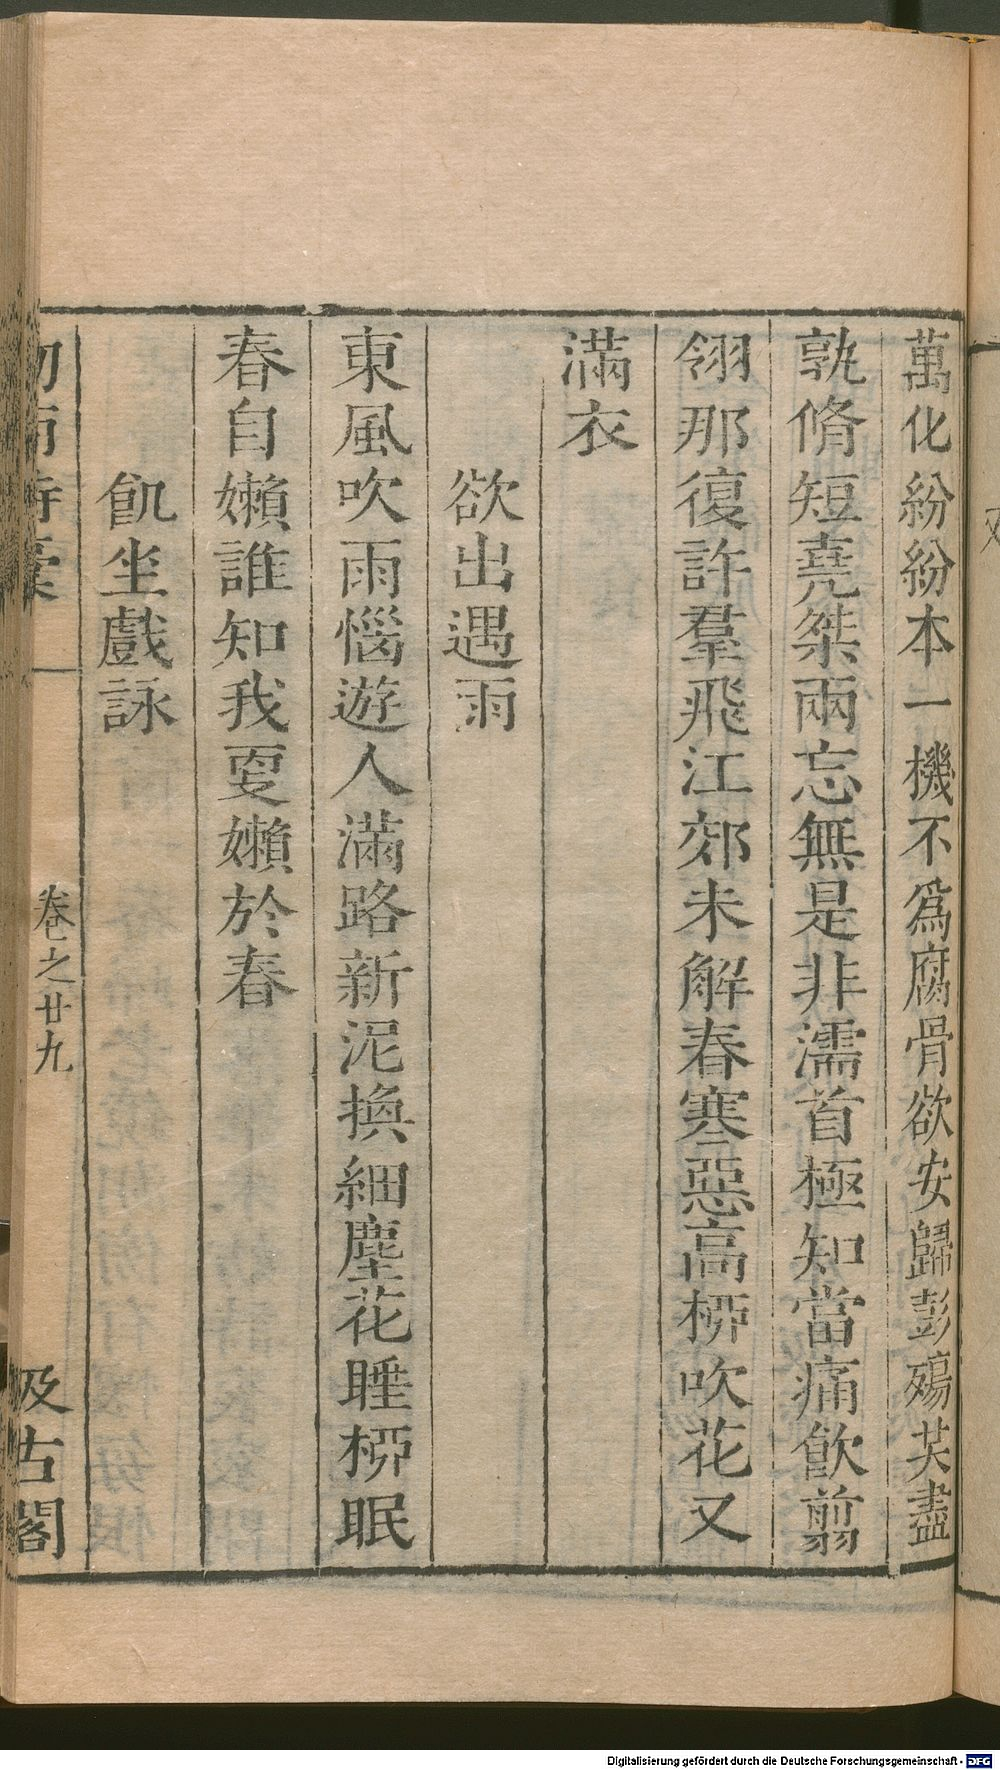 萬化紛紛本一機不爲腐骨欲安歸彭殤共盡
孰脩短堯桀兩忘無是非濡首極知當痛飮翦
翎那復許羣飛江郊未解春寒惡高桺吹花又
滿衣
欲出遇雨
東風吹雨惱遊人滿路新泥換細塵花睡桺眠
春自嬾誰知我更嬾於春
飢坐戲詠
卷之廿九
汲古閣
Digitalisierung gefördert durch die Deutsche Forschungsgemeinschaft - DFG